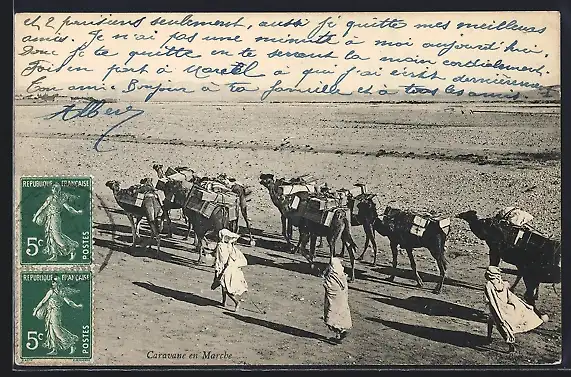 et 2 parisiens seulement, aussi je quitte mes meilleurs
amis. Je n'ai pas une minute à moi aujourd'hui
Donc je te quitte en te serrant la main cordialement,
bien part à Marcel à qui j'ai écrit dernièrement
Ton ami Bonjour à ta famille et à tous les amis
Albert
REPUBLIQUE FRANÇAISE
5c
POSTES
REPUBLIQUE FRANÇAISE
5c
POSTES
Caravane en Marche